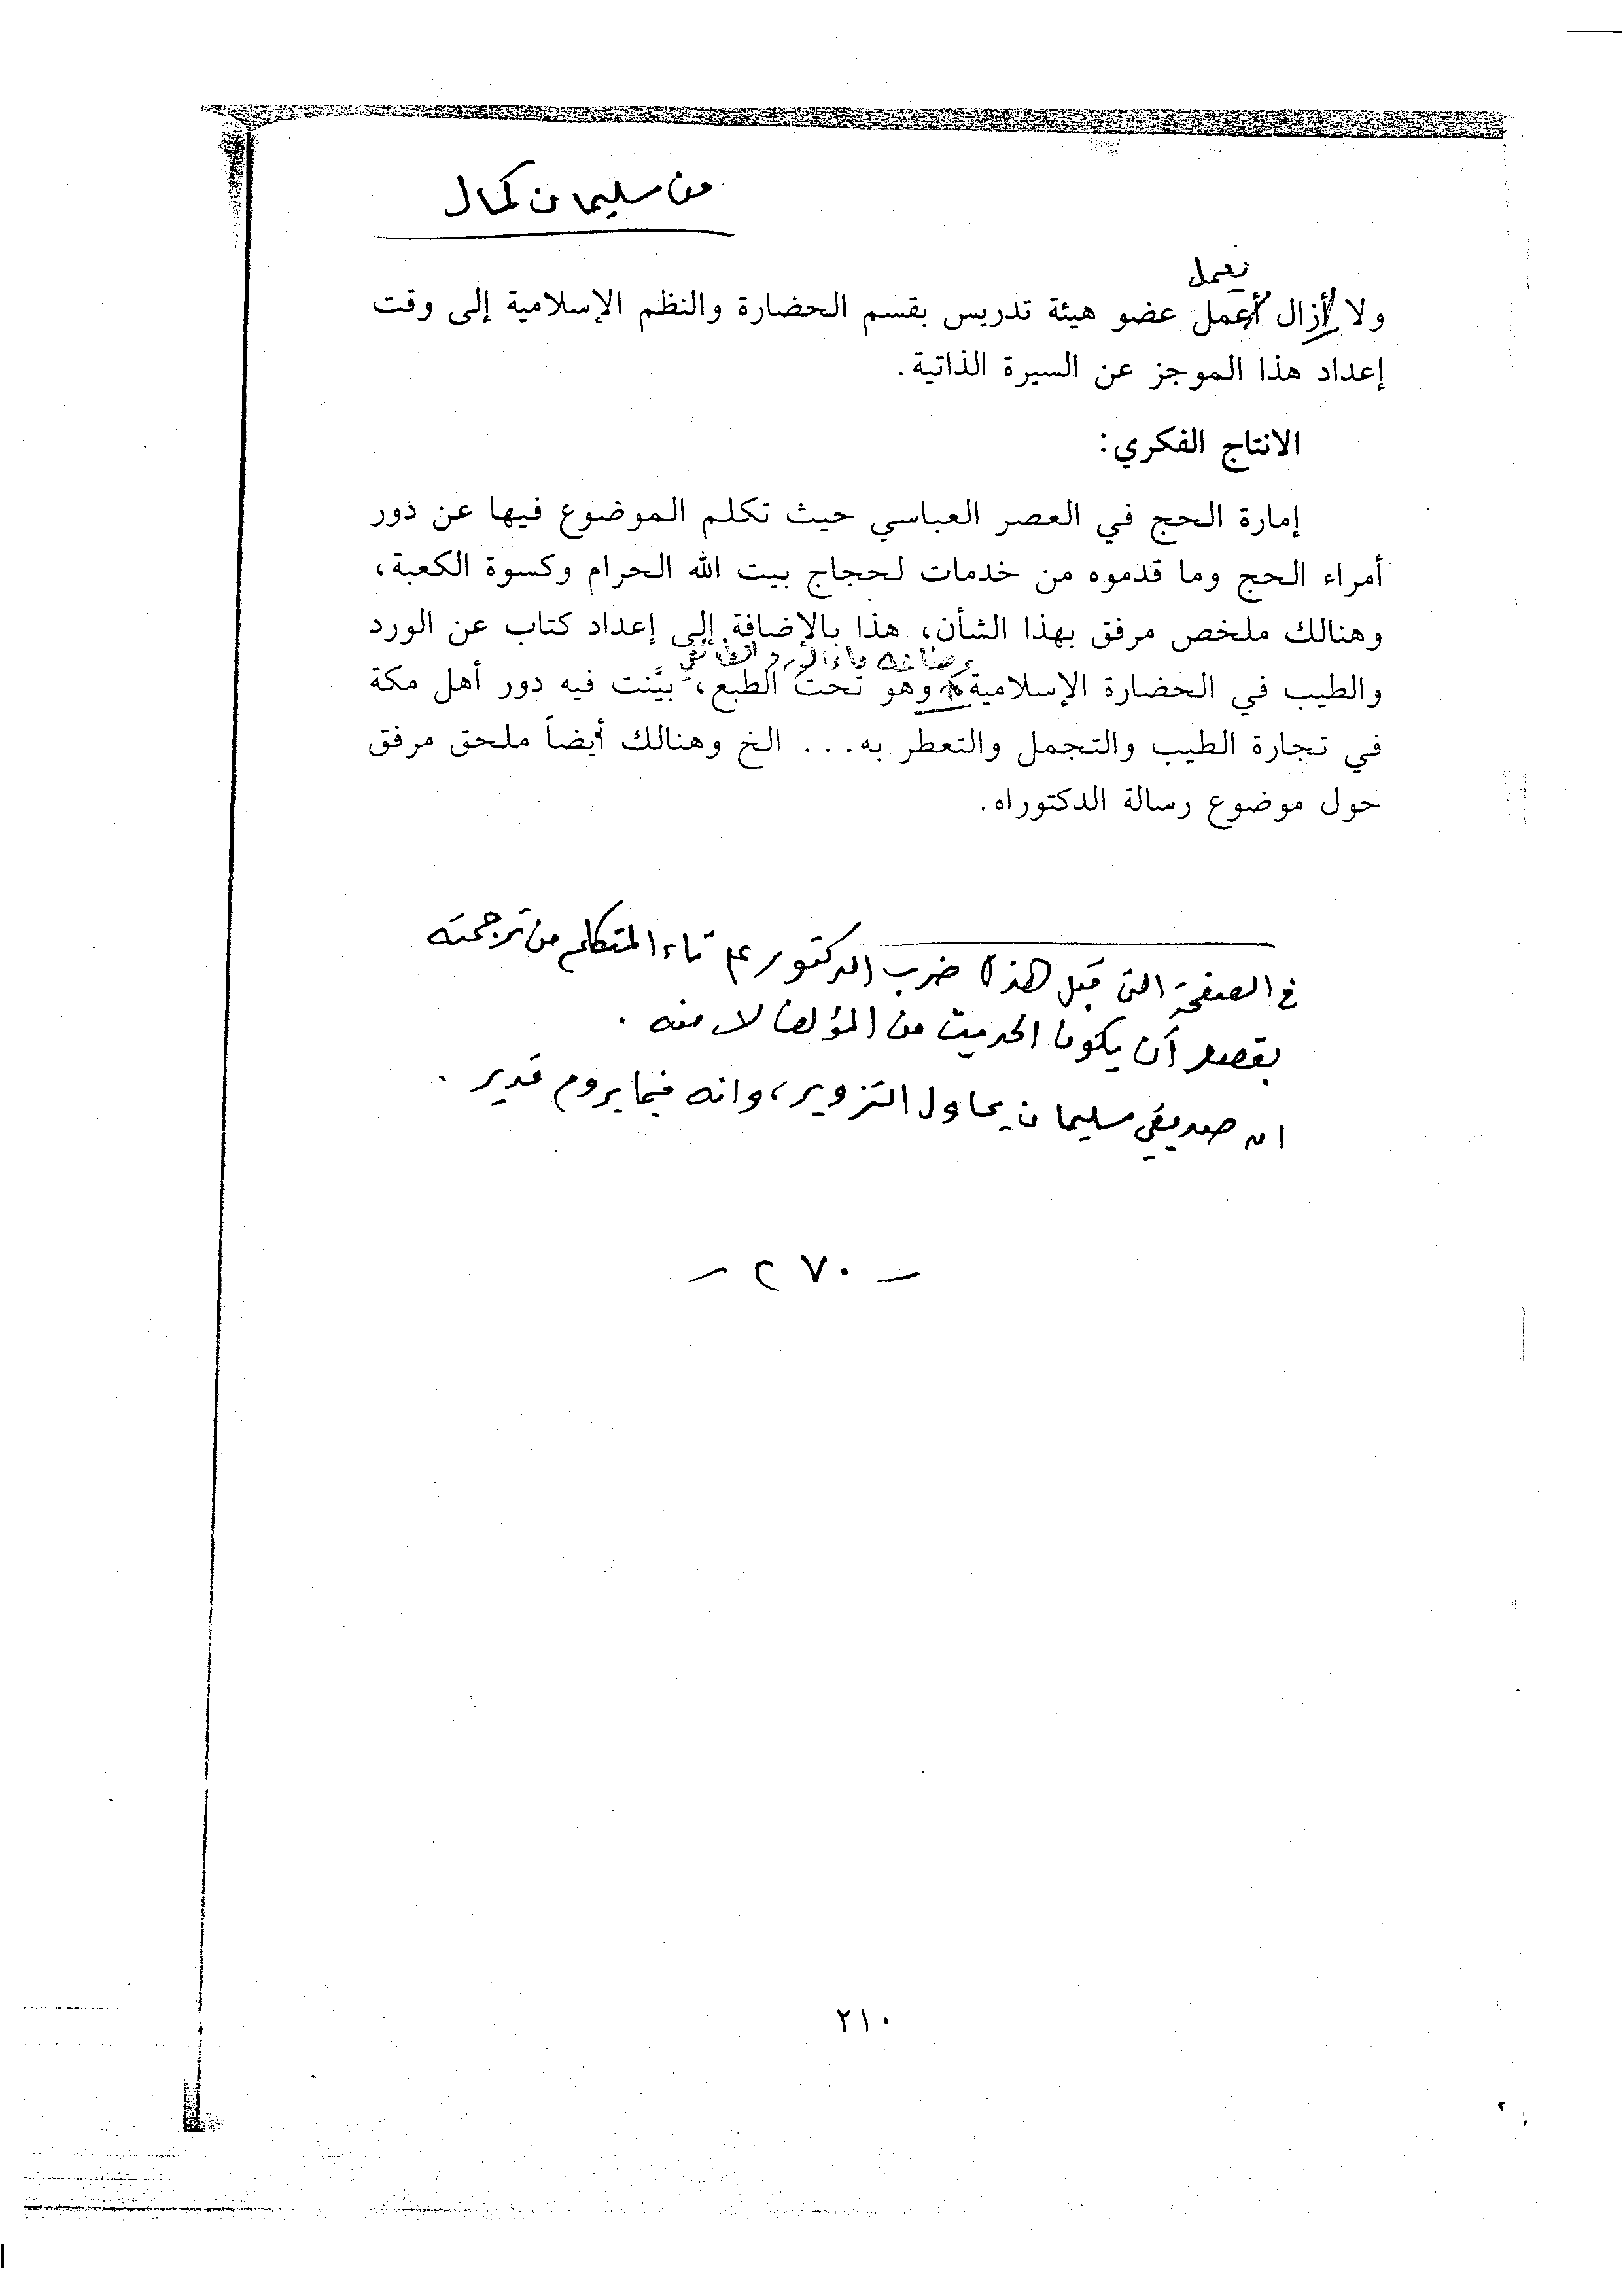 من سليمان كمال
يعمل
ولا أزال أعمل عضو هيئة تدريس بقسم الحضارة والنظم الإسلامية إلى وقت
إعداد هذا الموجز عن السيرة الذاتية.
الانتاج الفكري:
إمارة الحج في العصر العباسي حيث تكلم الموضوع فيها عن دور
أمراء الحج وما قدموه من خدمات لحجاج بيت الله الحرام وكسوة الكعبة،
وهنالك ملخص مرفق بهذا الشأن، هذا بالإضافة إلى إعداد كتاب عن الورد
وصناعة ماء الورد
والطيب في الحضارة الإسلامية وهو تحت الطبع، بيَّنت فيه دور أهل مكة
في تجارة الطيب والتجمل والتعطر به... الخ وهنالك أيضاً ملحق مرفق
حول موضوع رسالة الدكتوراه.
في الصفحة التي قبل هذا ضرب الدكتور على تاء المتكلم من ترجمته
بقصد أن يكون الحديث من المؤلف لا منه .
ان صديقي سليمان يحاول التزوير، وانه فيما يروم قدير .
- ٢٧٠ -
٢١٠